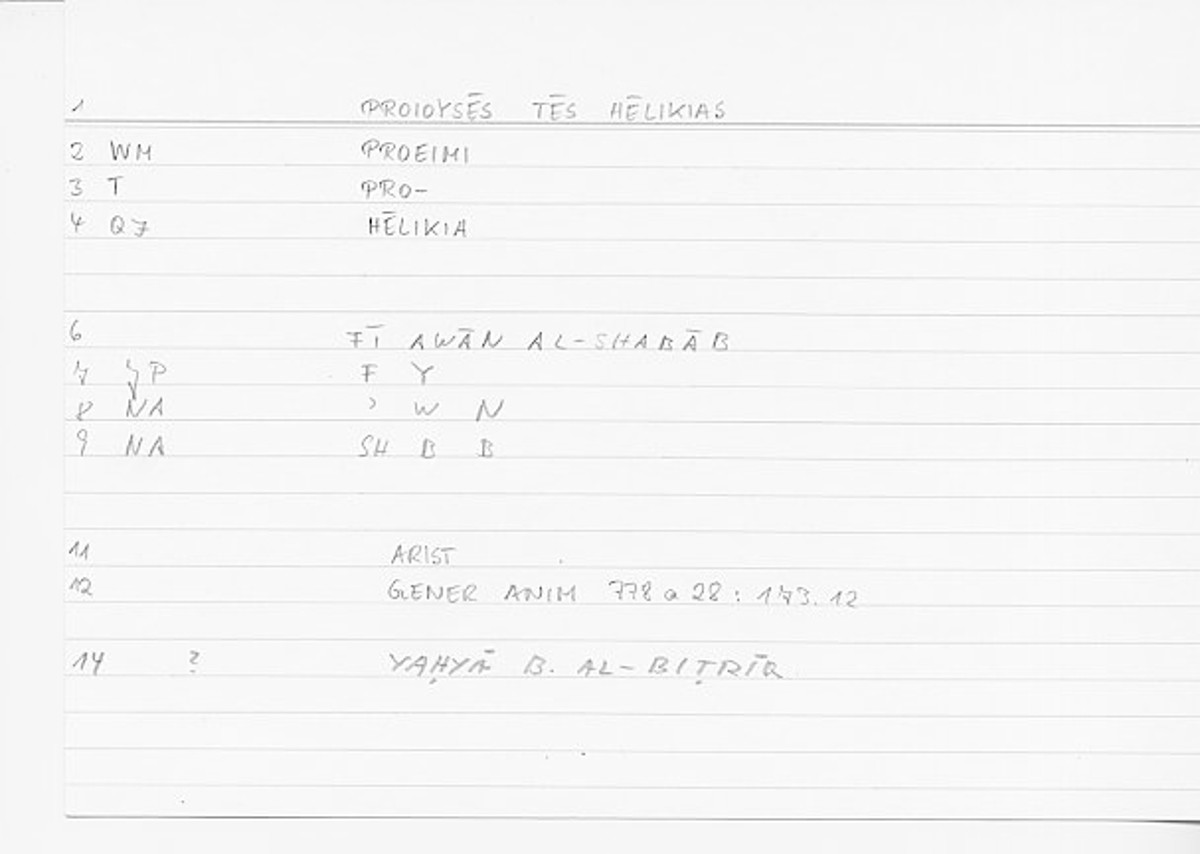 1 PROIOYSĒS TĒS HĒLIKIAS
2 WM PROEIMI
3 T PRO-
4 QJ HĒLIKIA
6 FĪ AWĀN AL-SHABĀB
7 P F Y
8 NA ʾ W N
9 NA SH B B
11 ARIST
12 GENER ANIM 778 a 28 : 173.12
14 ? YAḤYĀ B. AL-BIṬRĪQ